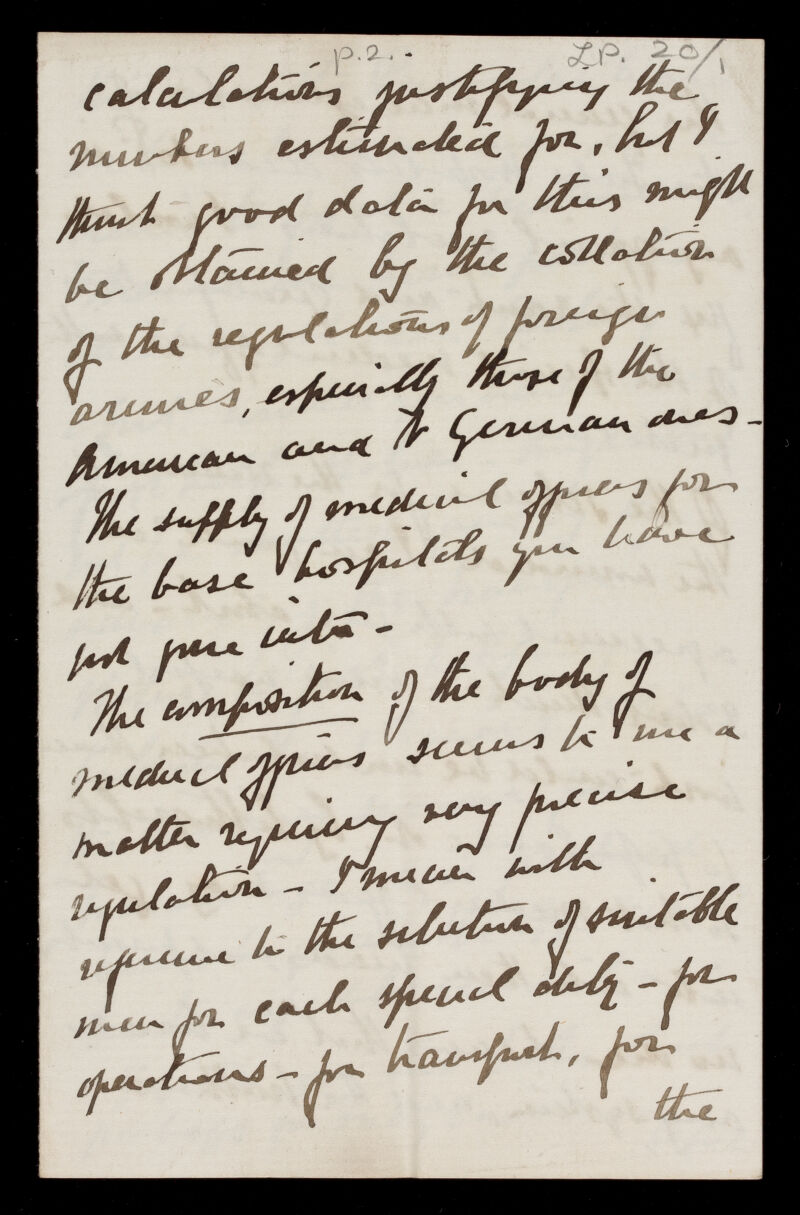 p. 2.
L.P. 20/1
calculations justifying the
numbers estimated for, but I
think good data for this might
be obtained by the collation
of the regulations of foreign
armies, especially those of the
American and German ones -
The supply of medical officers for
the base hospitals you have
just gone into -
The composition of the body of
medical officers seems to me a
matter requiring very precise
regulation - I mean with
reference to the selection of suitable
men for each special duty - for
operations - for transport, for
the